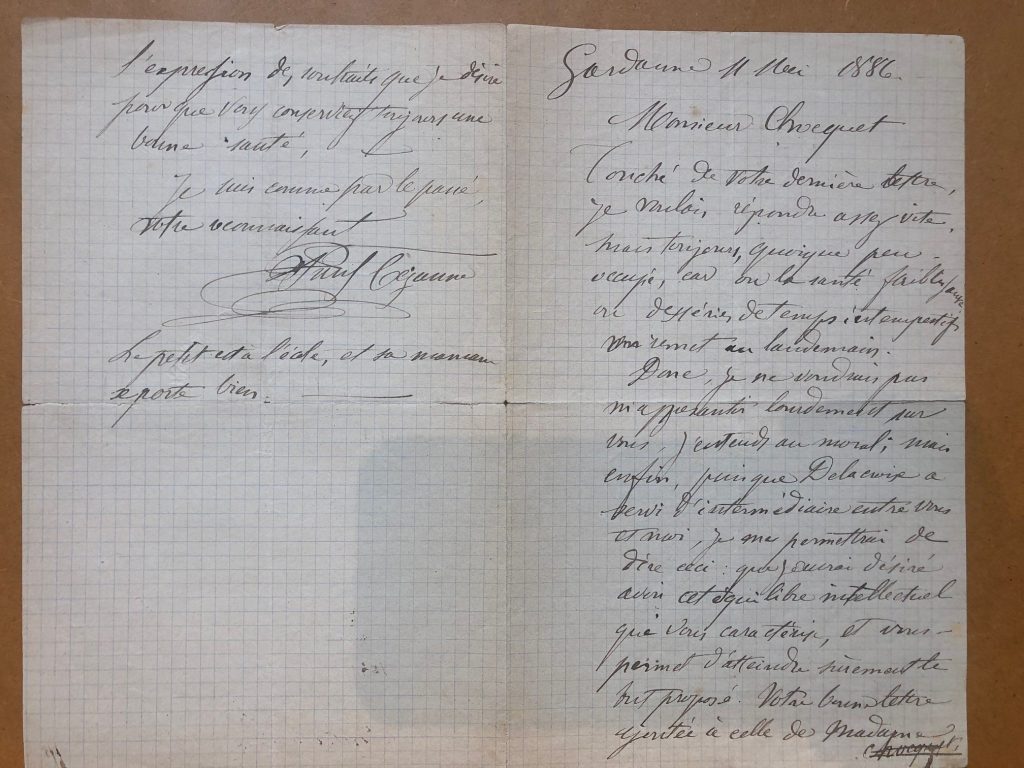 Gardanne 11 Mai 1886.
Monsieur Chocquet
Touché de votre dernière lettre,
je voulais répondre assez vite,
mais toujours, quoique peu
occupé, car ou la santé faible,
ou des séries de temps intempestifs
vous remet au lendemain.
Donc, je ne voudrais pas
m'appesantir lourdement sur
vous, j'entends au moral; mais
enfin, puisque Delacroix a
servi d'intermédiaire entre vous
et moi, je me permettrai de
dire ceci: que j'aurai désiré
avoir cet équilibre intellectuel
que vous caractérise, et vous
permet d'atteindre sûrement le
but proposé. Votre bonne lettre
ajoutée à celle de Madame
Chocquet,
l'expression des souhaits que je désire
pour que vous conserviez toujours une
bonne santé,
Je suis comme par le passé,
votre reconnaissant
Paul Cézanne
Le petit est à l'école, et sa maman
se porte bien.